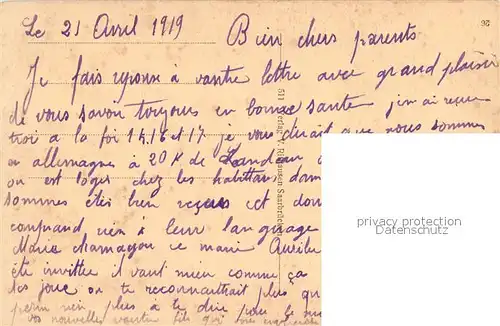 Le 21 Avril 1919 Bien chers parents
26
Je fais reponse à vautre lettre avec grand plaisir
de vous savoir toujours en bonne sante j'en ai reçue
troi a la foi 14, 16 et 17 je vous dirait que nous sommes
en allemagne à 20 K de Landau
on est loges chez les habittans
sommes étés bien reçus cet
conprand rien à leur language
Marie se marie
éte invittee il vaut mieu comme ça
les joue on te reconnaittrait plus
rien plus à te dire pour le
vos nouvelles vautre fils qui
privacy protection
Datenschutz